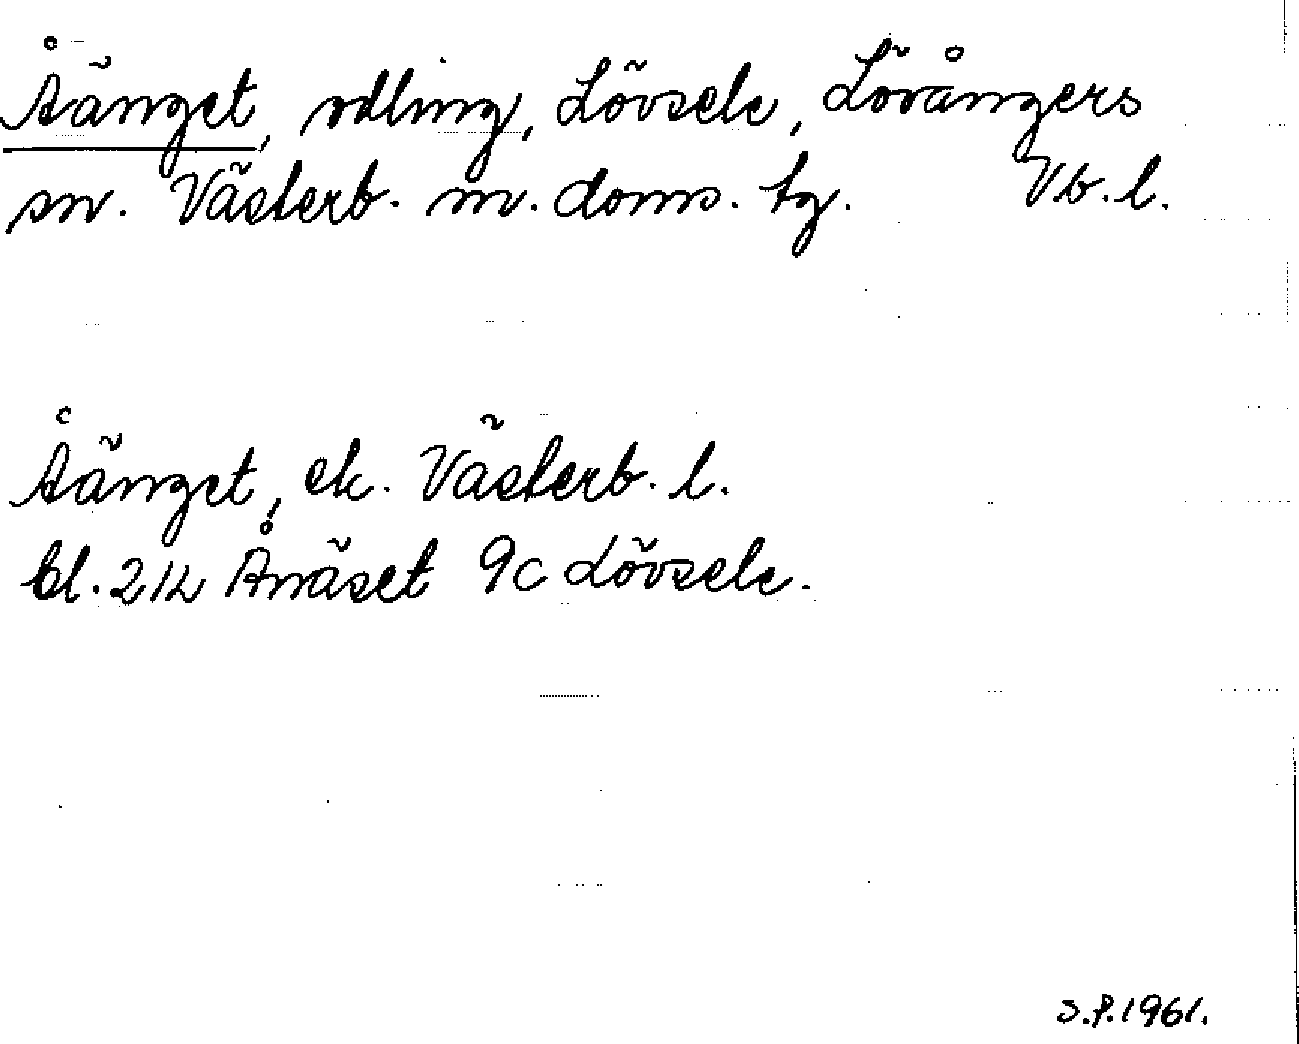 Åänget, odling, Lövsele, Lövångers
sn. Västerb. m. doms. tg. Vb. l.
Åänget, ek. Västerb. l.
bl. 21L Ånäset 9c Lövsele.
S.P. 1961.